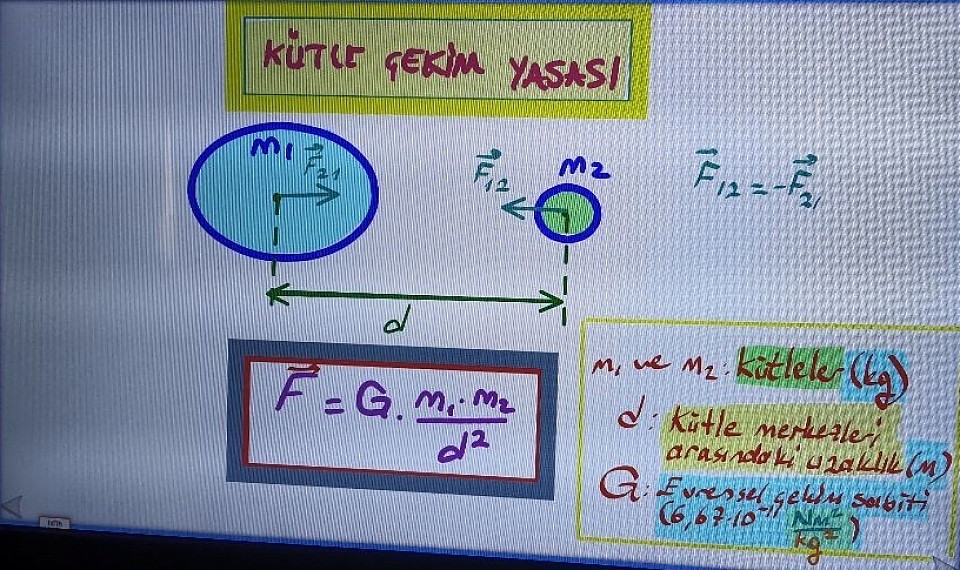 KÜTLE ÇEKİM YASASI
m1 F⃗21
F⃗12 m2
F⃗12 = -F⃗21
d
F⃗ = G. m1.m2 / d²
m1 ve m2: Kütleler (kg)
d: Kütle merkezleri
arasındaki uzaklık (m)
G: Evressel çekim sabiti
(6,67.10⁻¹¹ Nm²/kg²)